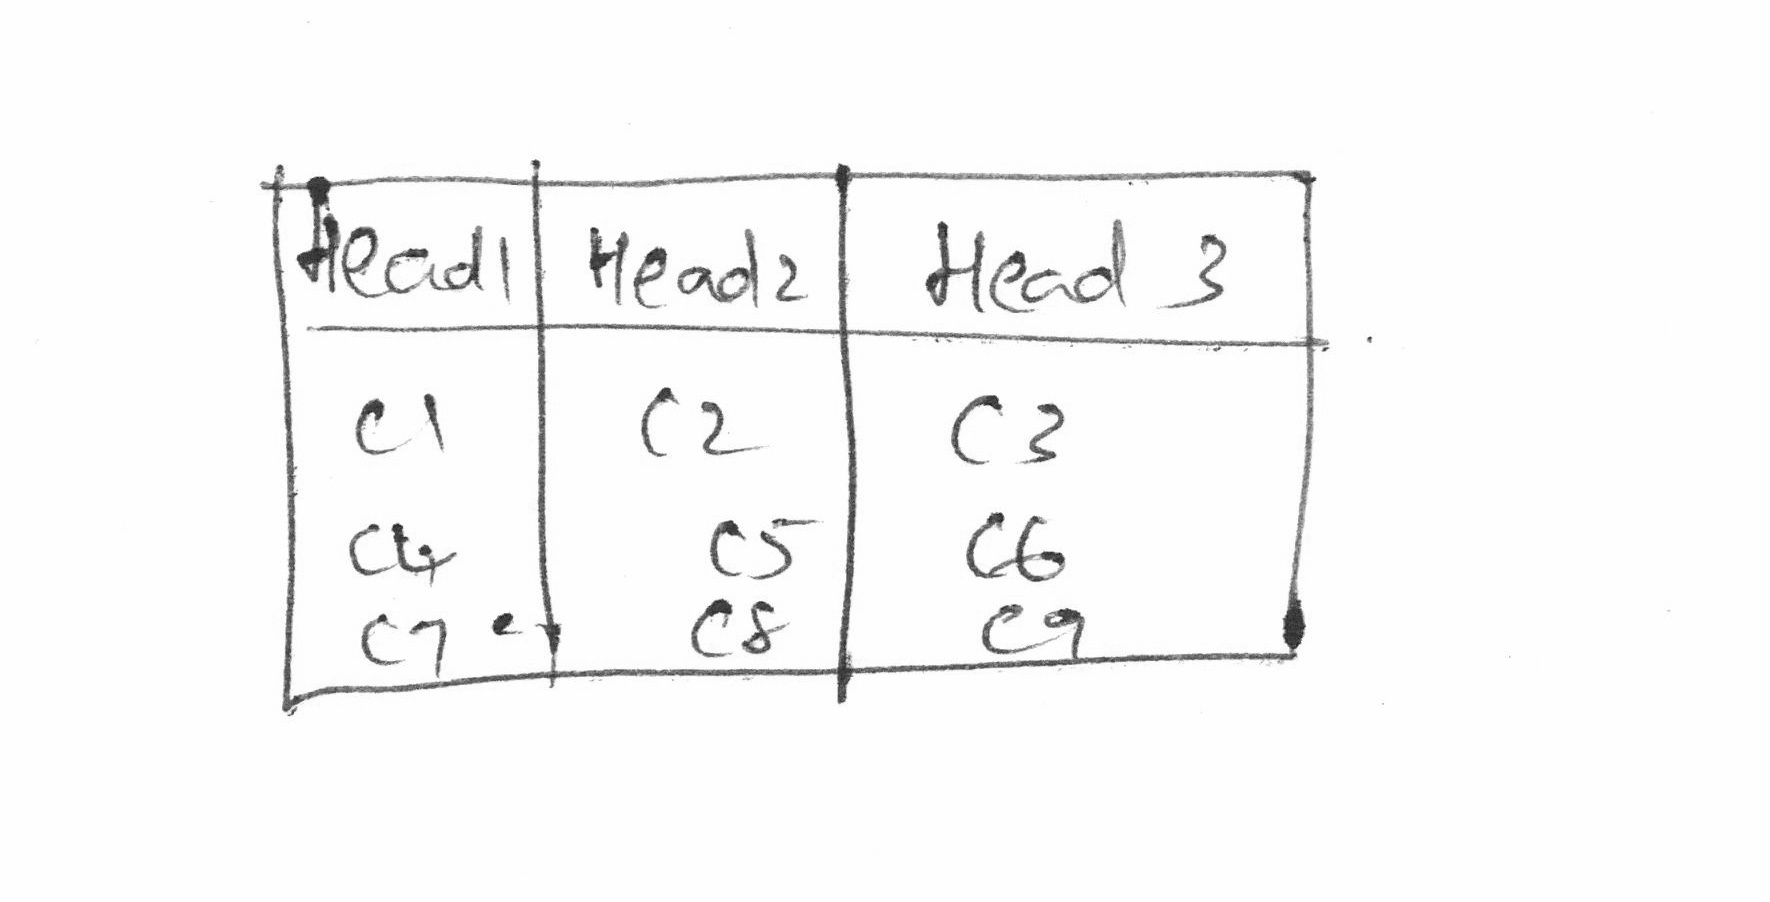 Head1 Head2 Head 3
C1 C2 C3
C4 C5 C6
C7 C8 C9